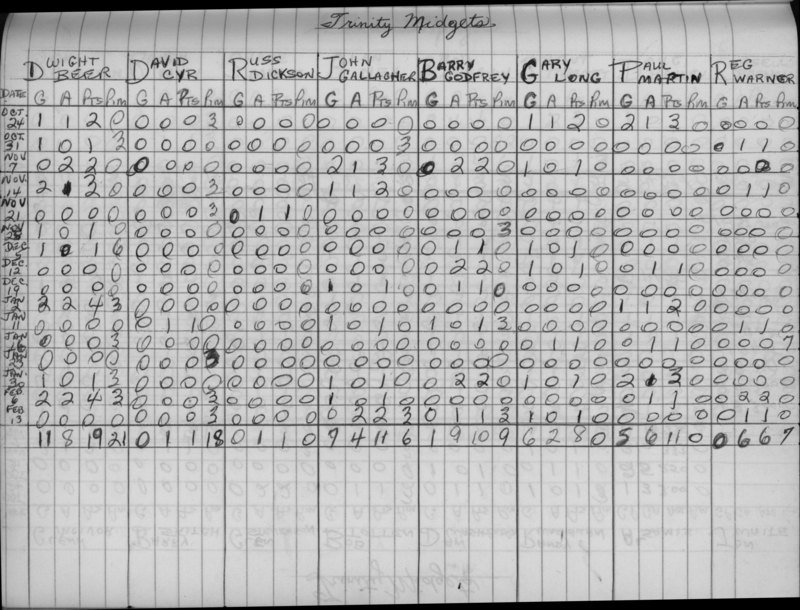 Trinity Midgets
DWIGHT BEER DAVID CYR RUSS DICKSON JOHN GALLAGHER BARRY GODFREY GARY LONG PAUL MARTIN REG WARNER
DATE G A Pts Pim G A Pts Pim G A Pts Pim G A Pts Pim G A Pts Pim G A Pts Pim G A Pts Pim G A Pts Pim
OCT. 24 1 1 2 0 0 0 0 3 0 0 0 0 0 0 0 0 0 0 0 0 1 1 2 0 2 1 3 0 0 0 0 0
OCT. 31 1 0 1 3 0 0 0 0 0 0 0 0 0 0 0 3 0 0 0 0 0 0 0 0 0 0 0 0 0 1 1 0
NOV 7 0 2 2 0 0 0 0 0 0 0 0 0 2 1 3 0 0 2 2 0 1 0 1 0 0 0 0 0 0 0 0 0
NOV. 14 2 1 3 0 0 0 0 3 0 0 0 0 1 1 2 0 0 0 0 0 0 0 0 0 0 0 0 0 0 1 1 0
NOV 21 0 0 0 0 0 0 0 3 0 1 1 0 0 0 0 0 0 0 0 0 0 0 0 0 0 0 0 0 0 0 0 0
NOV 28 1 0 1 0 0 0 0 0 0 0 0 0 0 0 0 0 0 0 0 3 0 0 0 0 0 0 0 0 0 0 0 0
DEC 5 1 0 1 6 0 0 0 0 0 0 0 0 0 0 0 0 0 1 1 0 1 0 1 0 0 0 0 0 0 0 0 0
DEC. 12 0 0 0 0 0 0 0 0 0 0 0 0 0 0 0 0 0 2 2 0 1 0 1 0 0 1 1 0 0 0 0 0
DEC. 19 0 0 0 0 0 0 0 0 0 0 0 0 1 0 1 0 0 1 1 0 0 0 0 0 0 0 0 0 0 0 0 0
JAN 2 2 4 3 0 0 0 0 0 0 0 0 0 0 0 0 0 0 0 0 0 0 0 0 1 1 2 0 0 0 0 0
JAN 11 0 0 0 0 0 1 1 0 0 0 0 0 1 0 1 0 1 0 1 3 0 0 0 0 0 0 0 0 0 1 1 0
JAN 0 0 0 3 0 0 0 0 0 0 0 0 0 0 0 0 0 0 0 0 0 1 1 0 0 1 1 0 0 0 0 7
JAN 0 0 0 0 0 0 0 3 0 0 0 0 0 0 0 0 0 0 0 0 0 0 0 0 0 0 0 0 0 0 0 0
JAN. 1 0 1 3 0 0 0 0 0 0 0 0 1 0 1 0 0 2 2 0 1 0 1 0 2 1 3 0 0 0 0 0
FEB 6 2 2 4 3 0 0 0 3 0 0 0 0 1 0 1 0 0 0 0 0 0 0 0 0 0 1 1 0 0 2 2 0
FEB 13 0 0 0 0 0 0 0 3 0 0 0 0 0 2 2 3 0 1 1 3 1 0 1 0 0 0 0 0 0 1 1 0
11 8 19 21 0 1 1 18 0 1 1 0 7 4 11 6 1 9 10 9 6 2 8 0 5 6 11 0 0 6 6 7